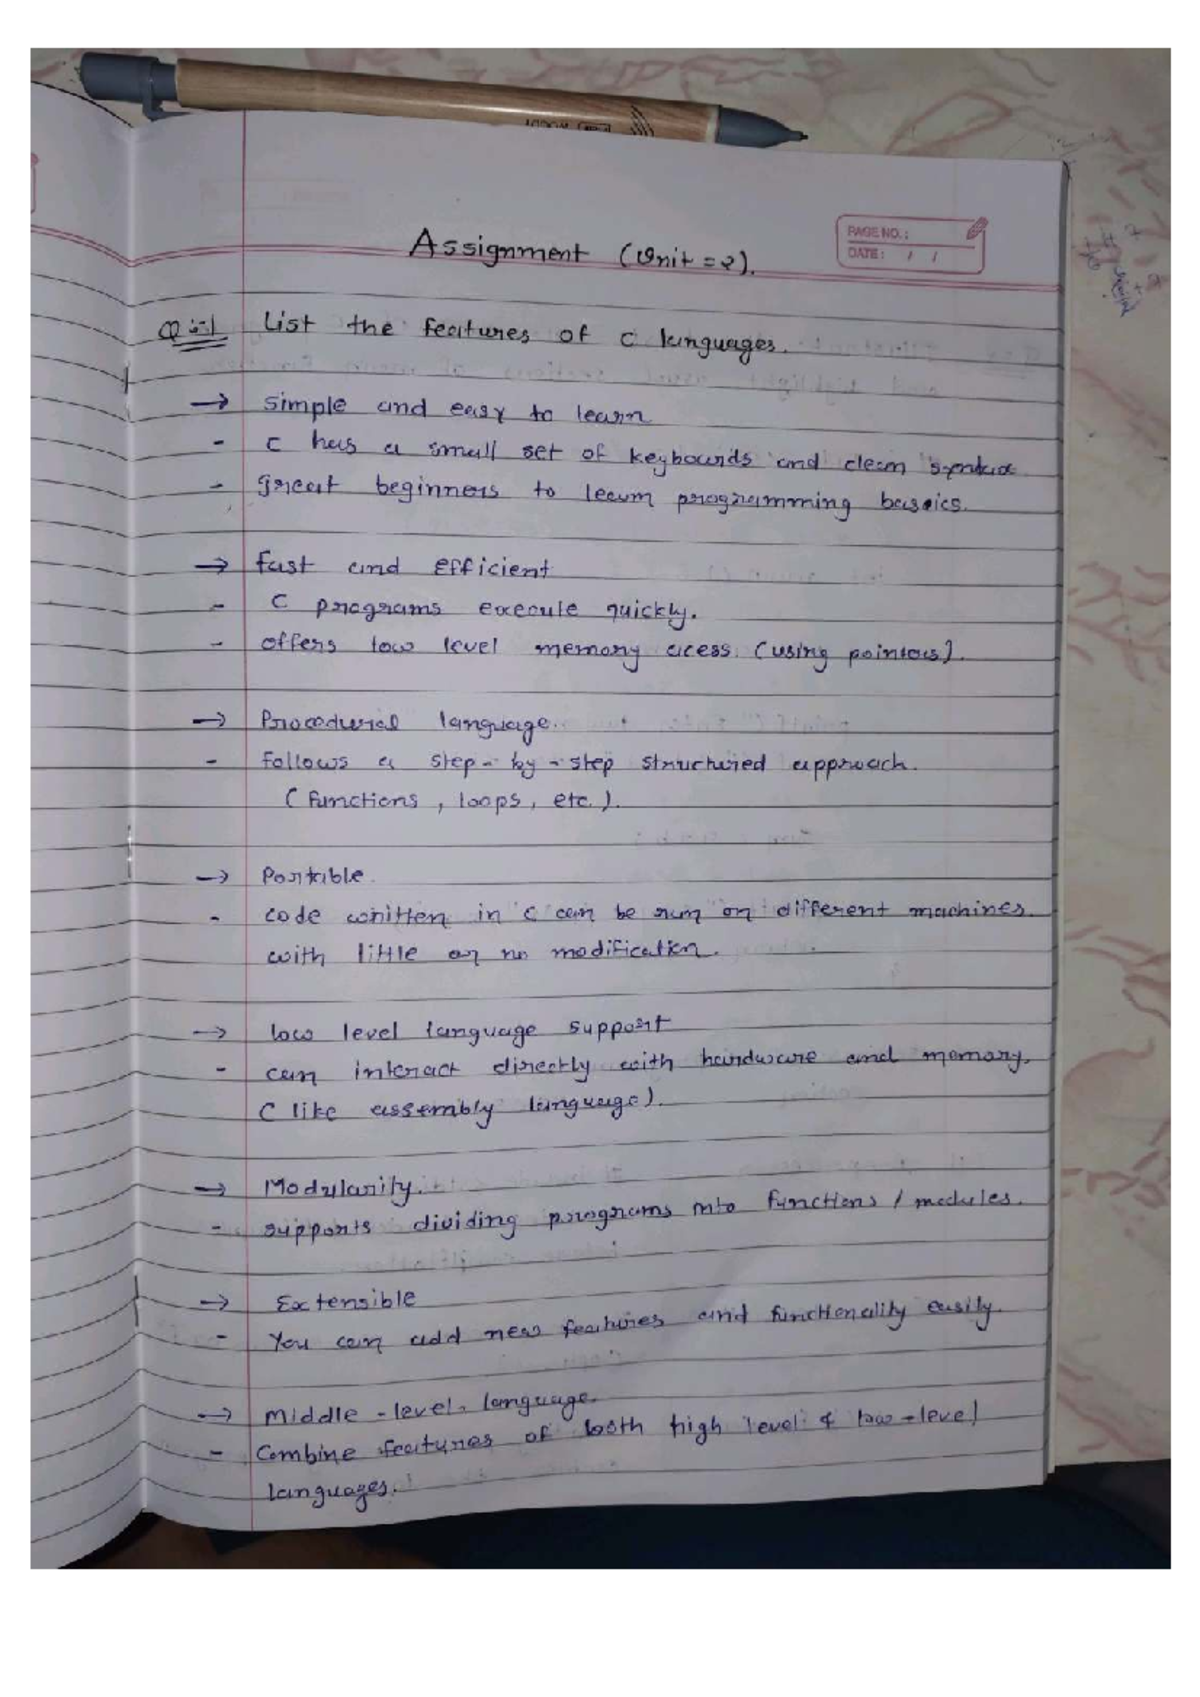 Assignment (Unit = 2).
PAGE NO.:
DATE: / /
Q:-1 List the features of C languages.
→ simple and easy to learn
- C has a small set of keybourds and clean syntax
- great beginners to learn programming basics.
→ fast and efficient
- C programs execute quickly.
- offers low level memory acess (using pointers).
→ Procedural language.
- follows a step-by-step structured approach.
(functions, loops, etc.).
→ Portable.
- code written in C can be run on different machines
with little or no modification.
→ low level language support
- can interact directly with hardware and memory.
(like assembly language).
→ Modularity.
- supports dividing programs into functions / modules.
→ Extensible
- You can add new features and functionality easily.
→ Middle-level-language.
- Combine features of both high level & low-level
languages.